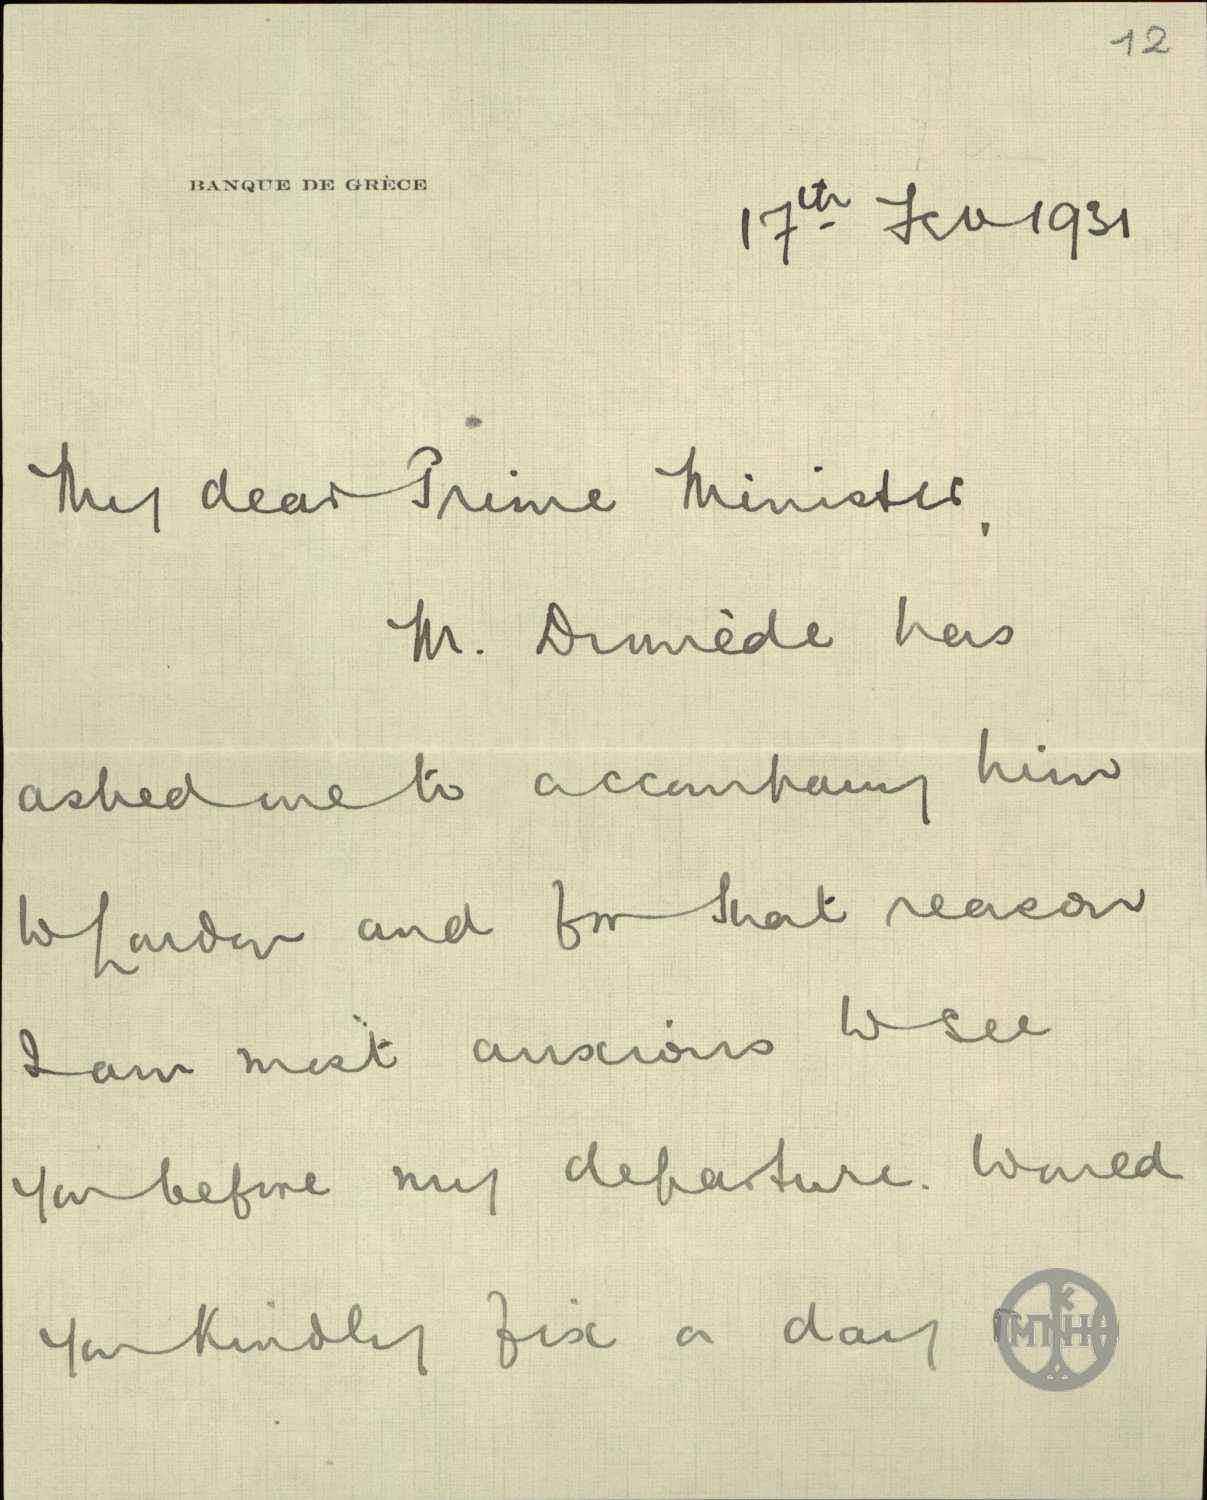 12
BANQUE DE GRÈCE
17th Feb 1931
My dear Prime Minister,
Mr. Diomède has
asked me to accompany him
to London and for that reason
I am most anxious to see
you before my departure. Would
you kindly fix a day